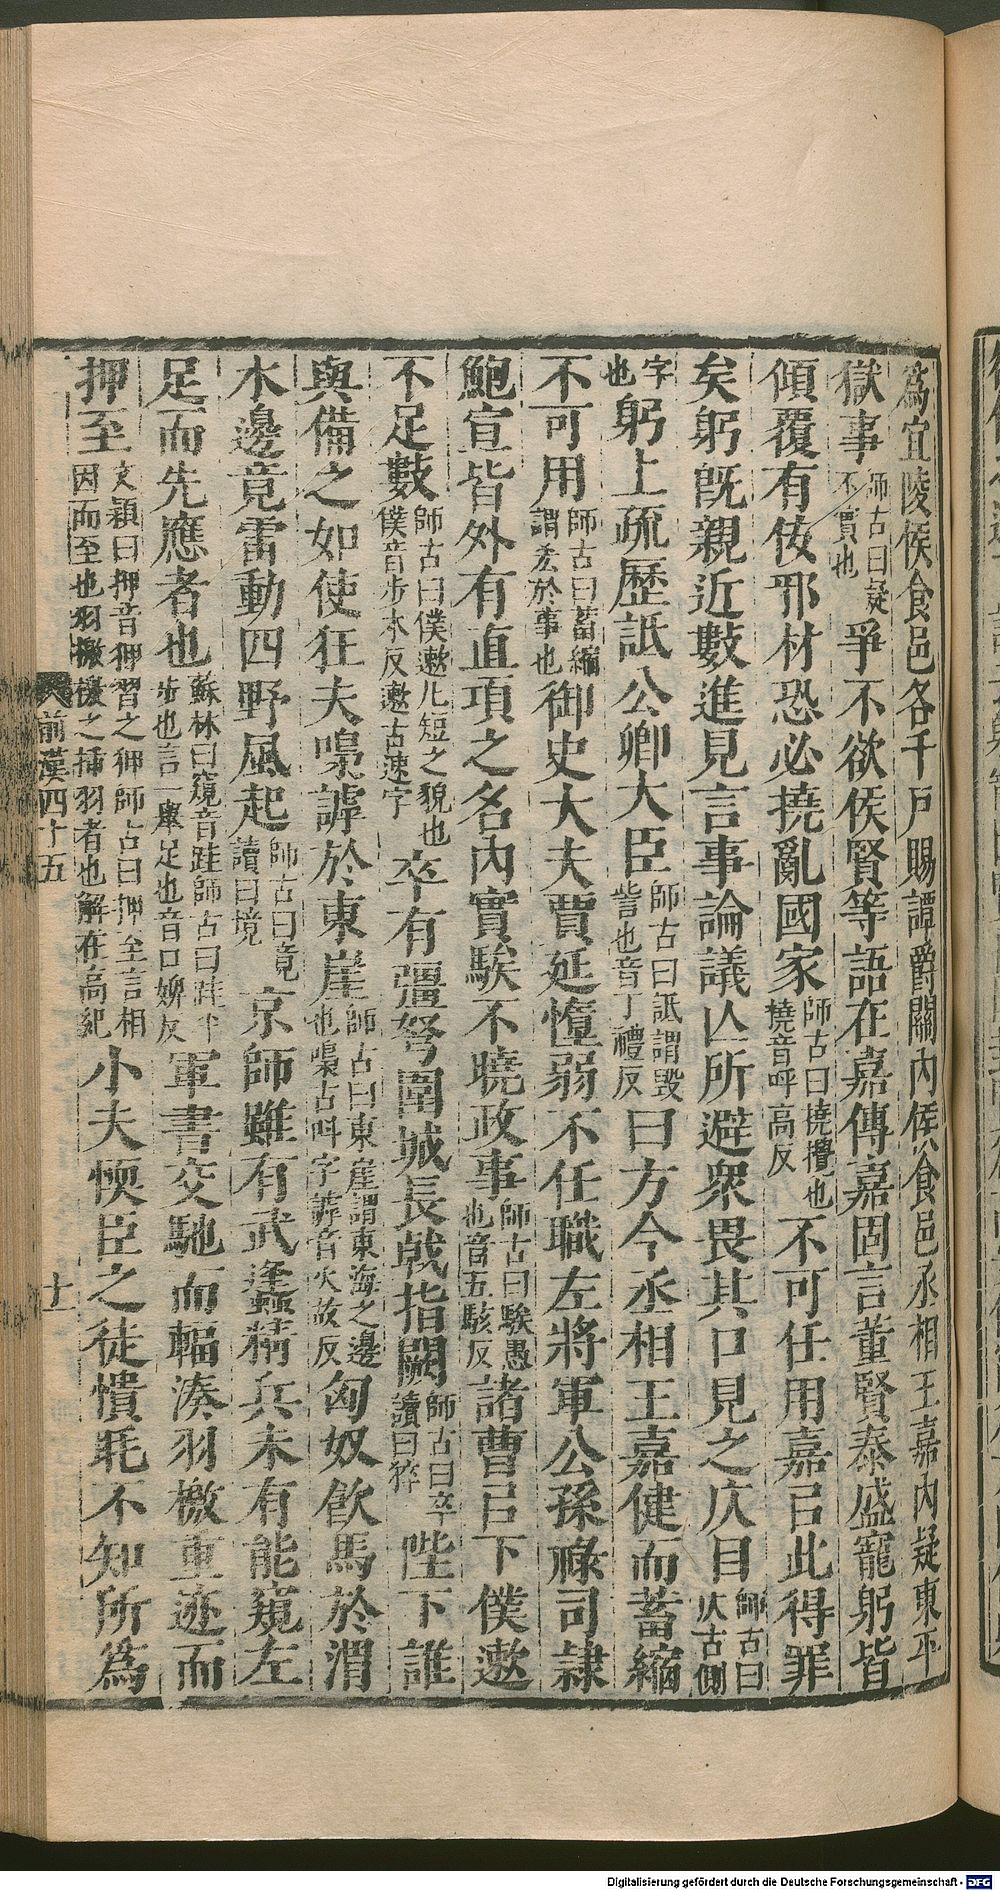 爲宜陵侯食邑各千戶賜譚爵關內侯食邑丞相王嘉內疑東平
獄事師古曰疑不實也爭不欲侯賢等語在嘉傳嘉固言董賢泰盛寵躬皆
傾覆有佞邪材恐必撓亂國家師古曰撓攪也撓音呼高反不可任用嘉㠯此得罪
矣躬旣親近數進見言事論議亾所避衆畏其口見之仄目師古曰仄古側
字也躬上疏歷詆公卿大臣師古曰詆謂毀訾也音丁禮反曰方今丞相王嘉健而蓄縮
不可用師古曰蓄縮謂㳒於事也御史大夫賈延惰弱不任職左將軍公孫祿司隸
鮑宣皆外有直項之名內實騃不曉政事師古曰騃愚也音五駭反諸曹㠯下僕遬
不足數師古曰僕遬凡短之貌也僕音步木反遬古速字卒有彊弩圍城長戟指闕師古曰卒讀曰猝陛下誰
與備之如使狂夫嘄謼於東崖師古曰東崖謂東海之邊也嘄古叫字謼音火故反匈奴飮馬於渭
水邊竟雷動四野風起師古曰竟讀曰境京師雖有武蠭精兵未有能窺左
足而先應者也蘇林曰窺音跬師古曰跬半步也言一舉足也音口婢反軍書交馳而輻湊羽檄重迹而
押至文穎曰押音狎習之狎師古曰押至言相因而至也羽檄檄之插羽者也解在高紀小夫愞臣之徒憒眊不知所爲
前漢四十五
十一
Digitalisierung gefördert durch die Deutsche Forschungsgemeinschaft - DFG